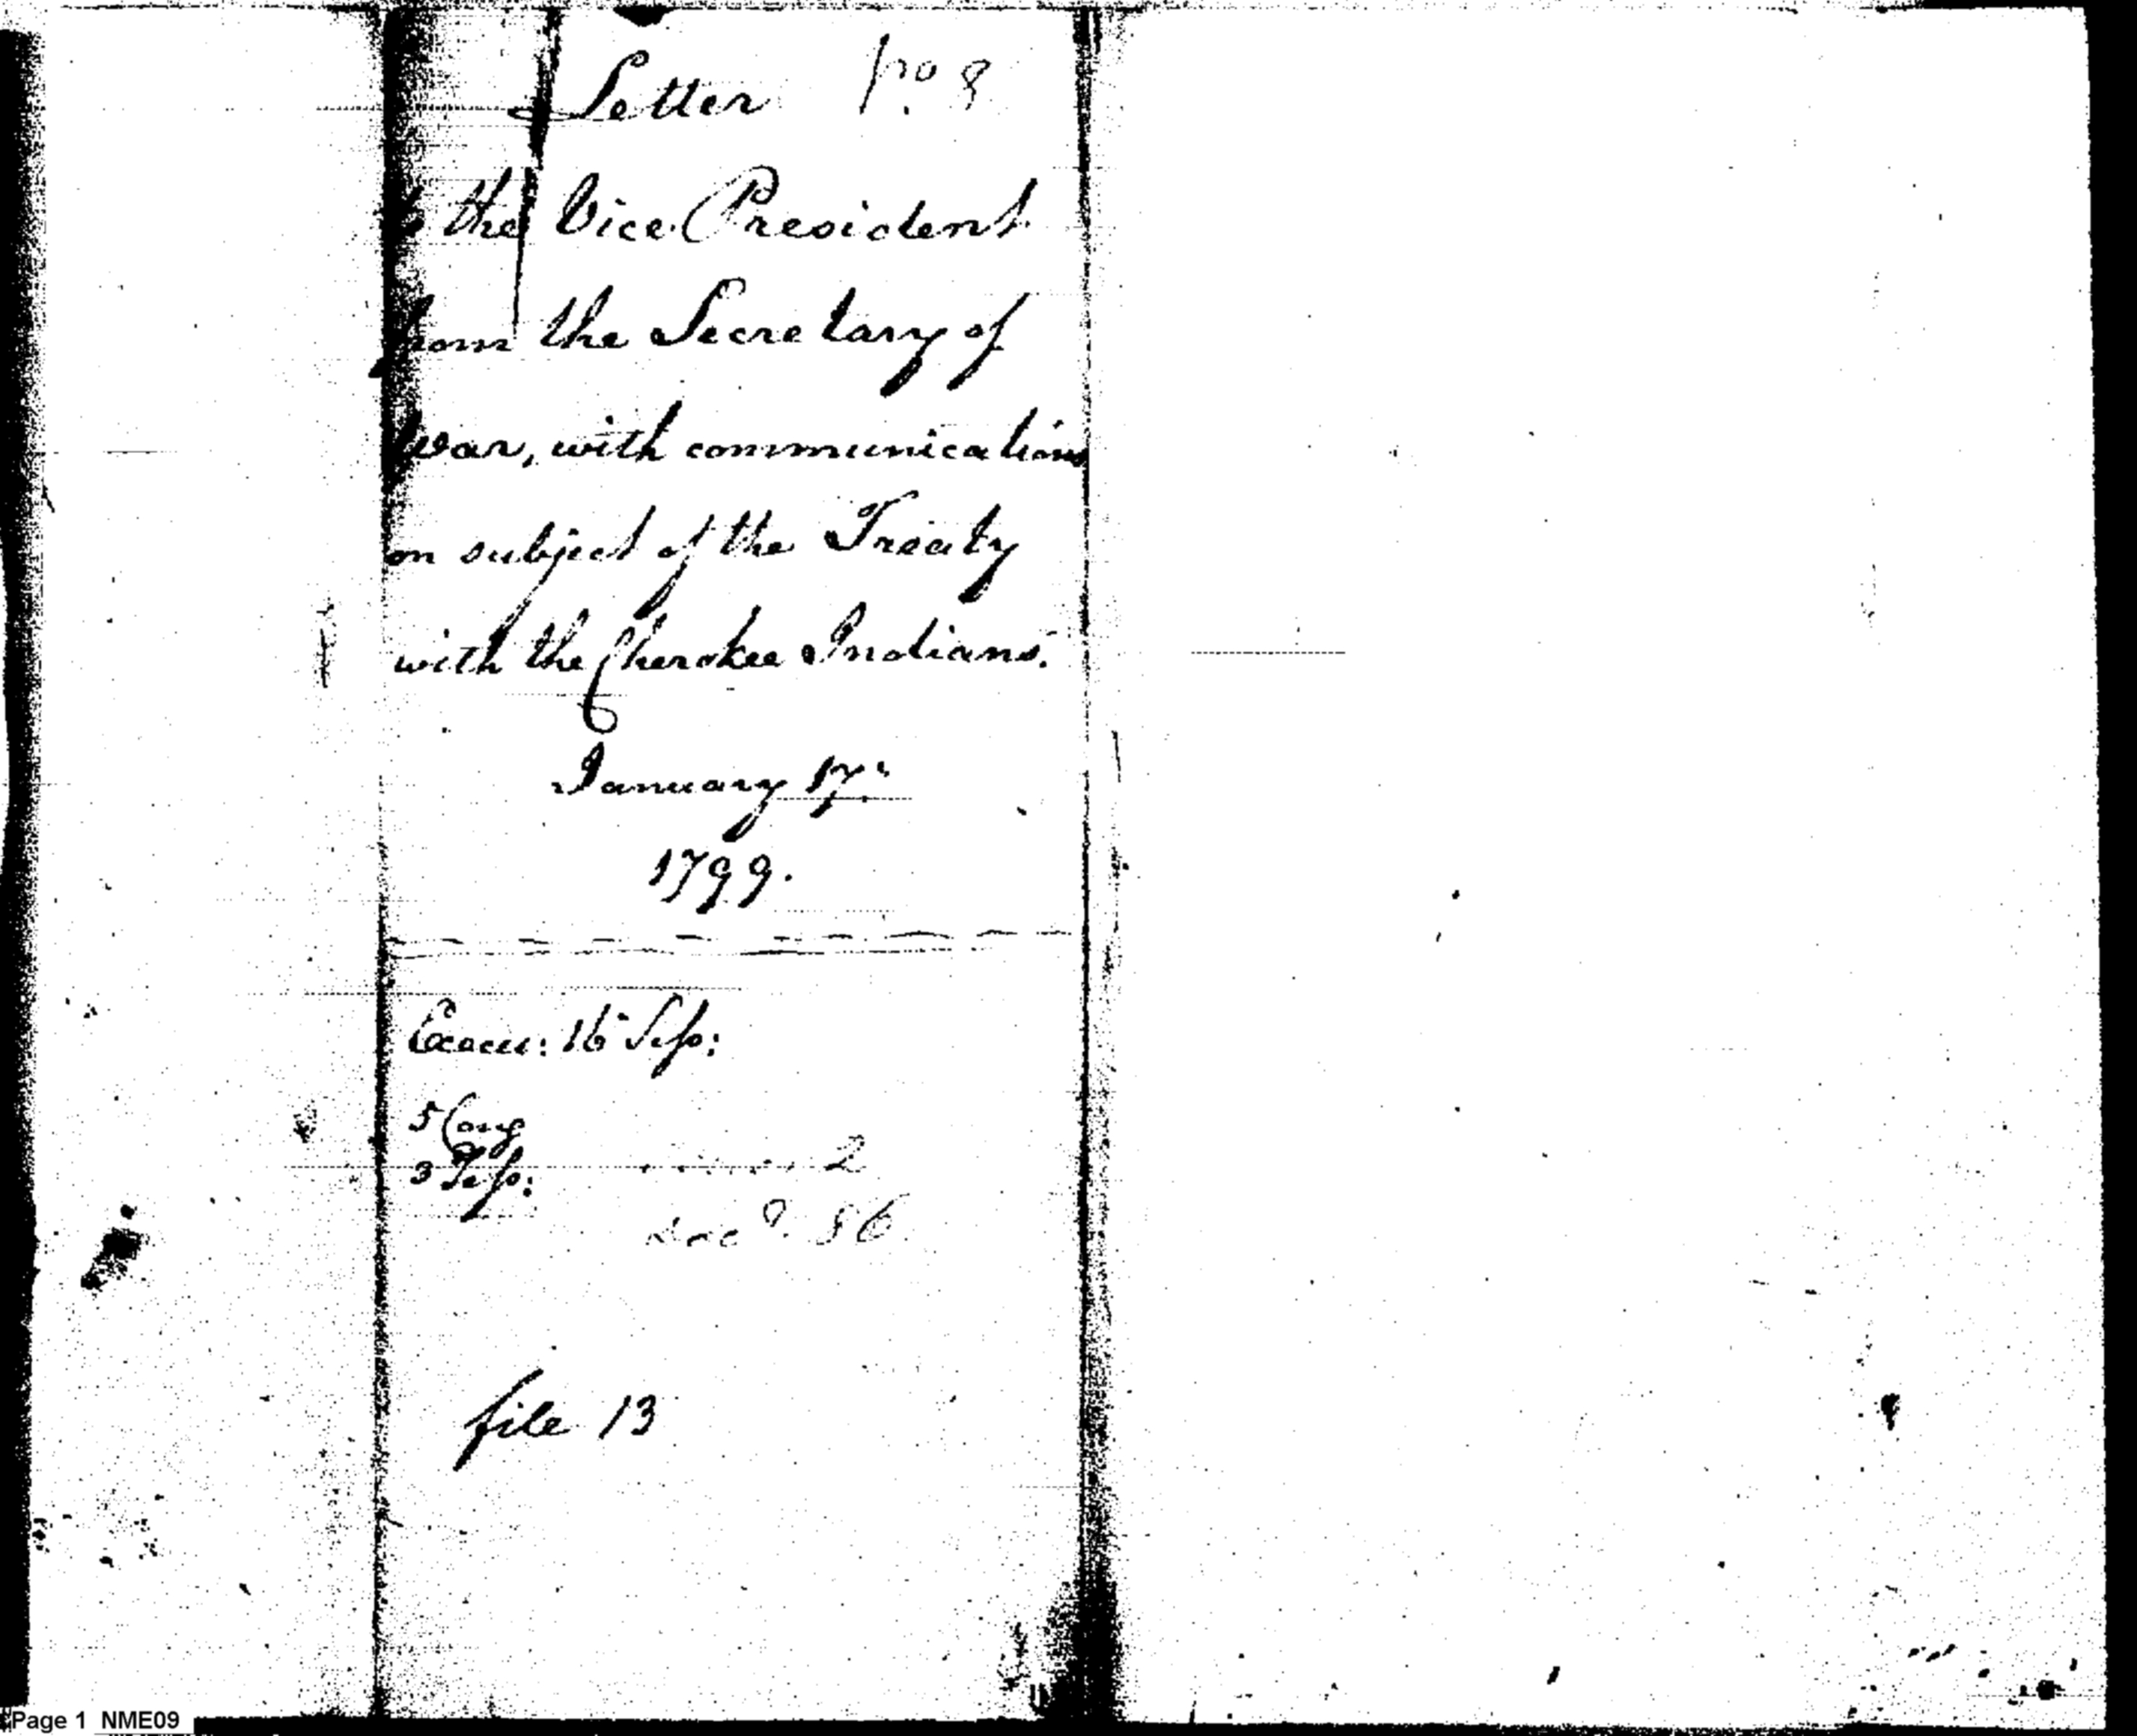 Letter No. 8
to the Vice President
from the Secretary of
War, with communications
on subject of the Treaty
with the Cherokee Indians.
January 17.
1799.
Execu: 16 Sess:
5 Cong
3 Sess:
2
86
file 13
Page 1 NME09